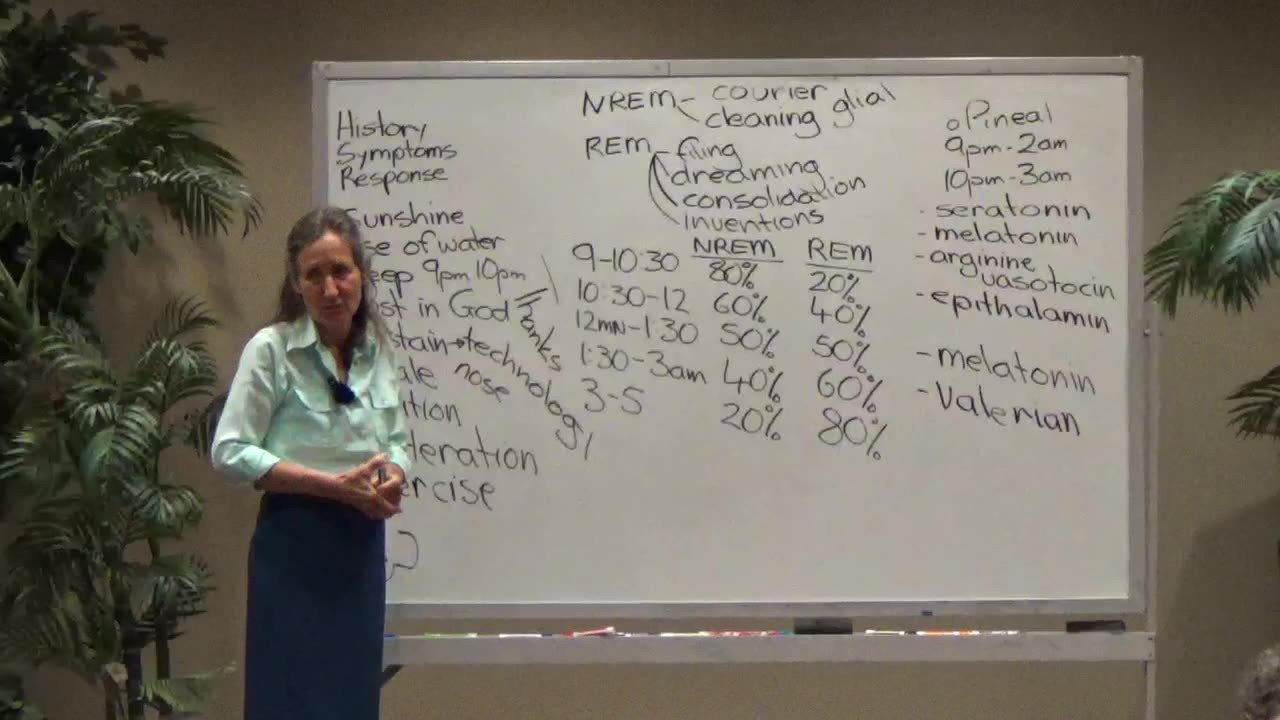 History
Symptoms
Response
Sunshine
of water
9pm 10pm
in God
Thanks
technology
nose
ercise
NREM - courier
cleaning glial
REM - filing
dreaming
consolidation
inventions
NREM REM
9-10:30 80% 20%
10:30-12 60% 40%
12MN-1:30 50% 50%
1:30-3am 40% 60%
3-5 20% 80%
Pineal
9pm-2am
10pm-3am
- seratonin
- melatonin
- arginine
vasotocin
- epithalamin
- melatonin
- Valerian